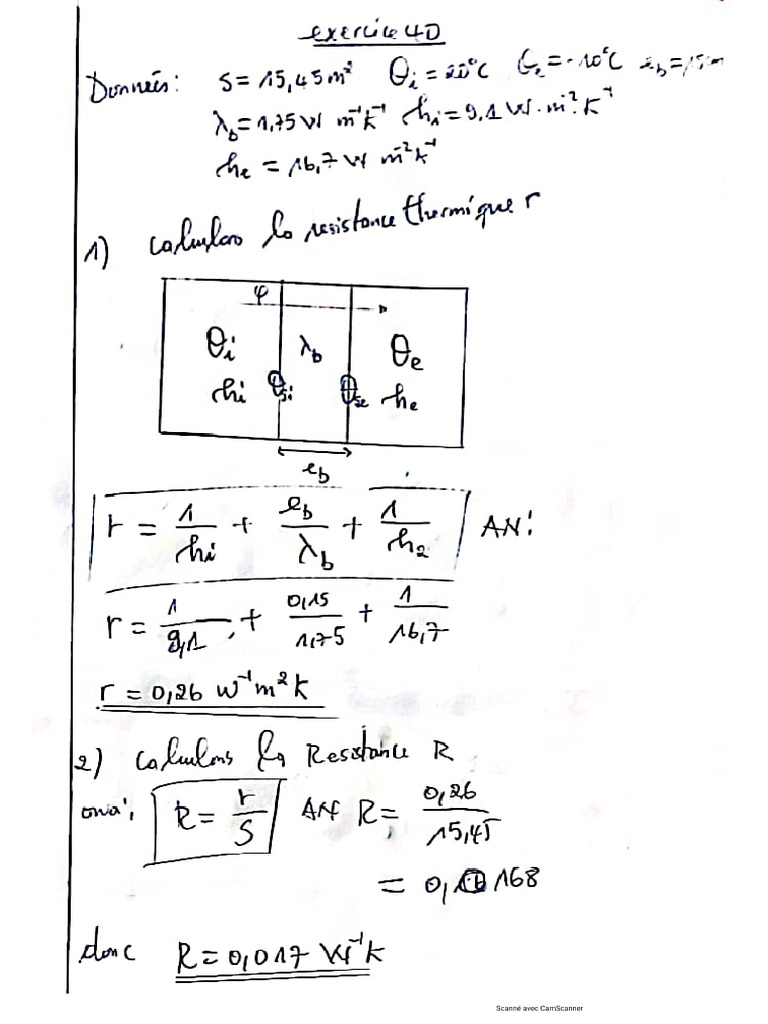 exercice 40
Données: S = 15,45 m² θi = 20°C θe = -10°C eb = 15cm
λb = 1,75 W m⁻¹k⁻¹ hi = 9,1 W·m⁻²·K⁻¹
he = 16,7 W m⁻²k⁻¹
1) Calculons la resistance thermique r
φ
θi λb θe
hi θsi θse he
eb
r = 1/hi + eb/λb + 1/h2 AN:
r = 1/9,1 + 0,15/1,75 + 1/16,7
r = 0,26 W⁻¹m²K
2) Calculons la Resistance R
ona: R = r/S AN R = 0,26/15,45
= 0,0168
donc R = 0,017 W⁻¹k
Scanné avec CamScanner